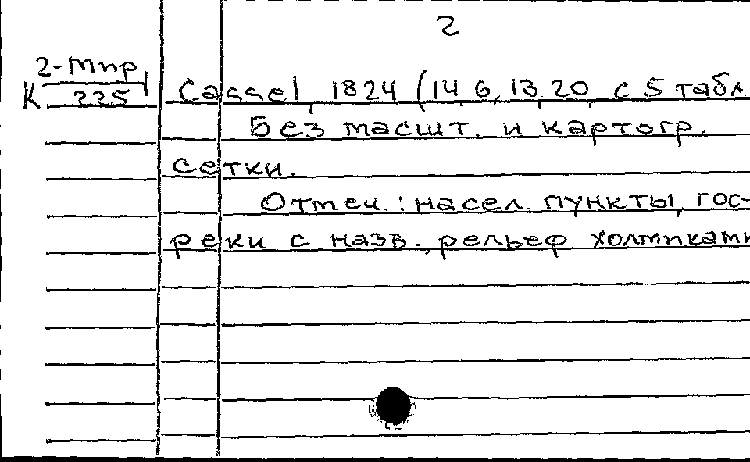 2
2-Мпр
К 225
Cassel, 1824 (14, 6, 13, 20, с 5 табл
Без масшт. и картогр.
сетки.
Отмеч.: насел. пункты, гос-
реки с назв., рельеф холмиками